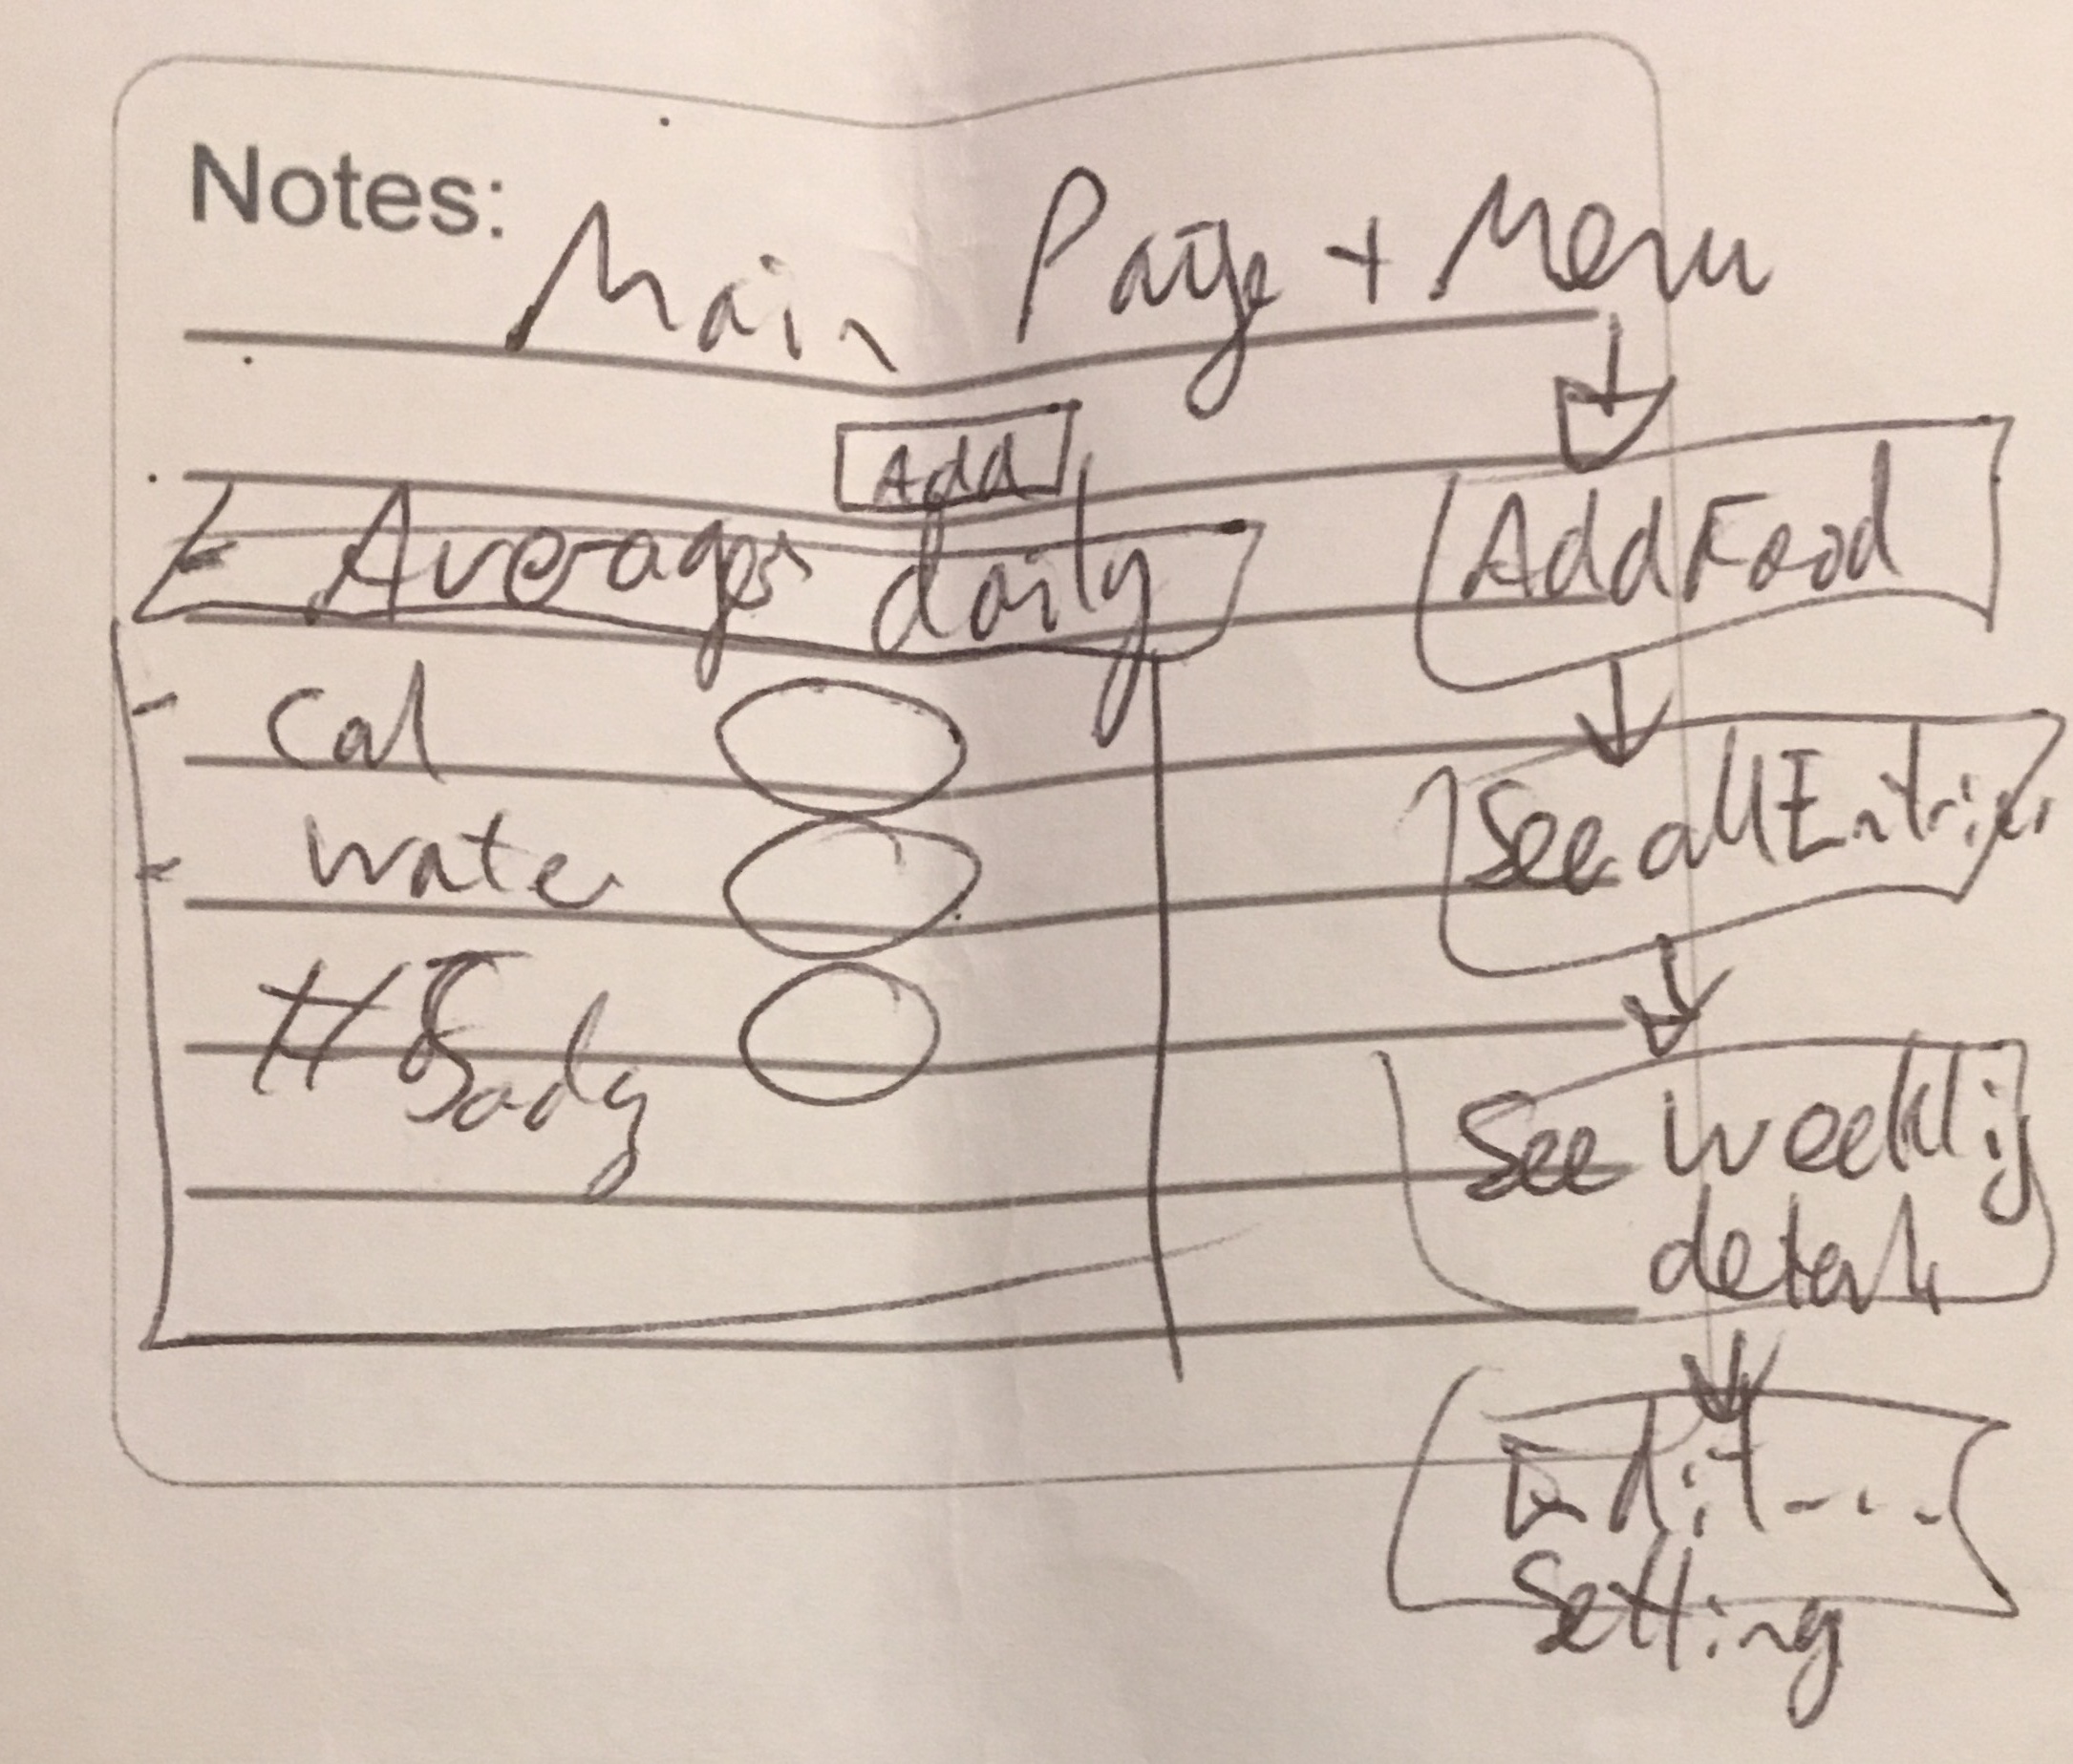 Notes:
Main Page + Menu
Add
Averages daily
Cal
water
#
Body
Add Food
See all Entries
See weekly
details
Edit ....
Setting